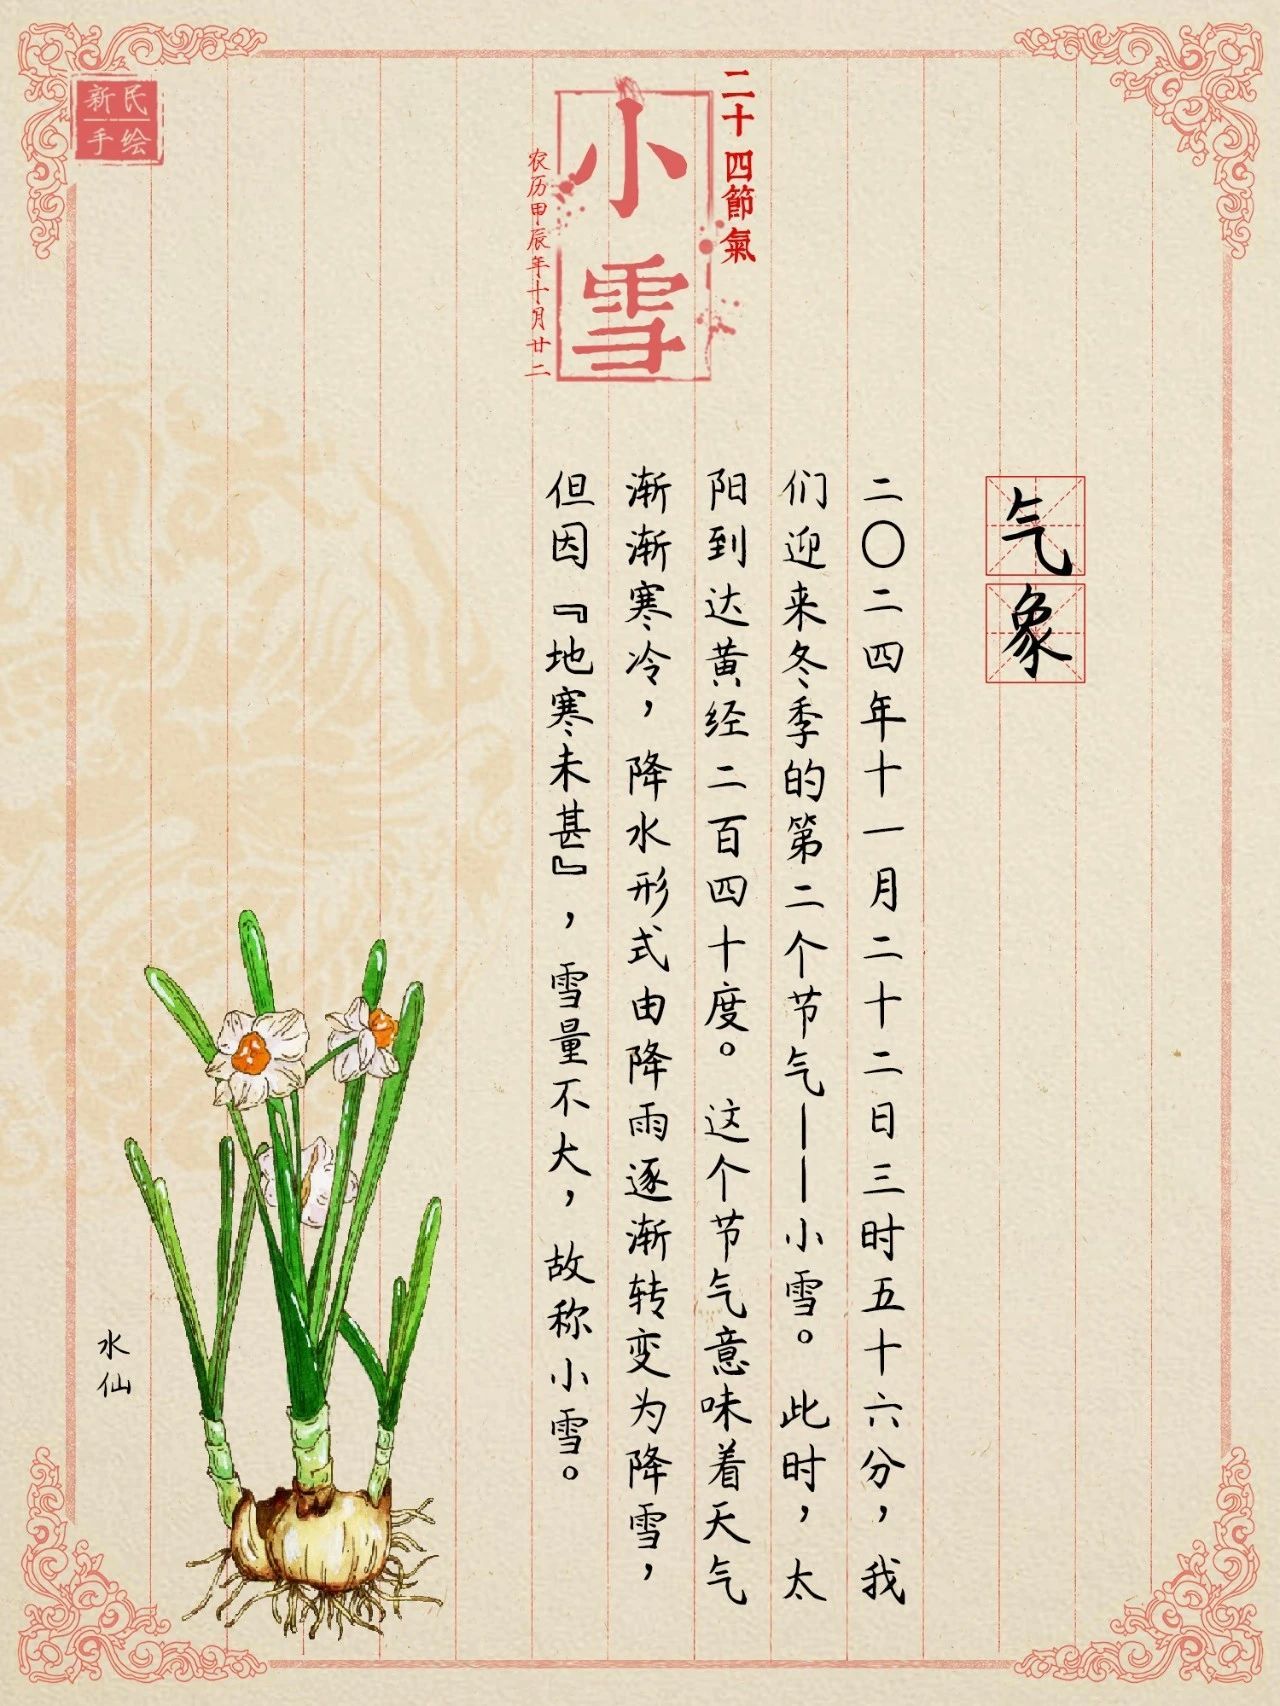 新民
手绘
二十四節氣
小雪
农历甲辰年十月廿二
气象
二〇二四年十一月二十二日三时五十六分，我
们迎来冬季的第二个节气——小雪。此时，太
阳到达黄经二百四十度。这个节气意味着天气
渐渐寒冷，降水形式由降雨逐渐转变为降雪，
但因『地寒未甚』，雪量不大，故称小雪。
水仙